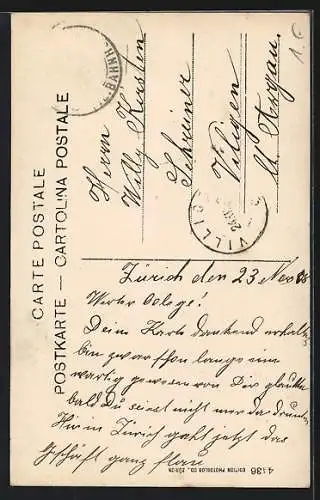 CARTE POSTALE
POSTKARTE — CARTOLINA POSTALE
BAHNH
Herrn
Willy Kirsten
Schreiner
Viligen
Kt. Argau.
VILLIG
Zürich den 23 Nov 08
Werter Colege!
Deine Karte dankend erhalten
bin zwar schon lange ein
wartig gewesen von Dir glaubte
bald Du seiest nicht mer da drunten
Hir in Zürich geht jetzt das
Gschäft ganz flau
4436 EDITION PHOTOGLOB CO. ZÜRICH